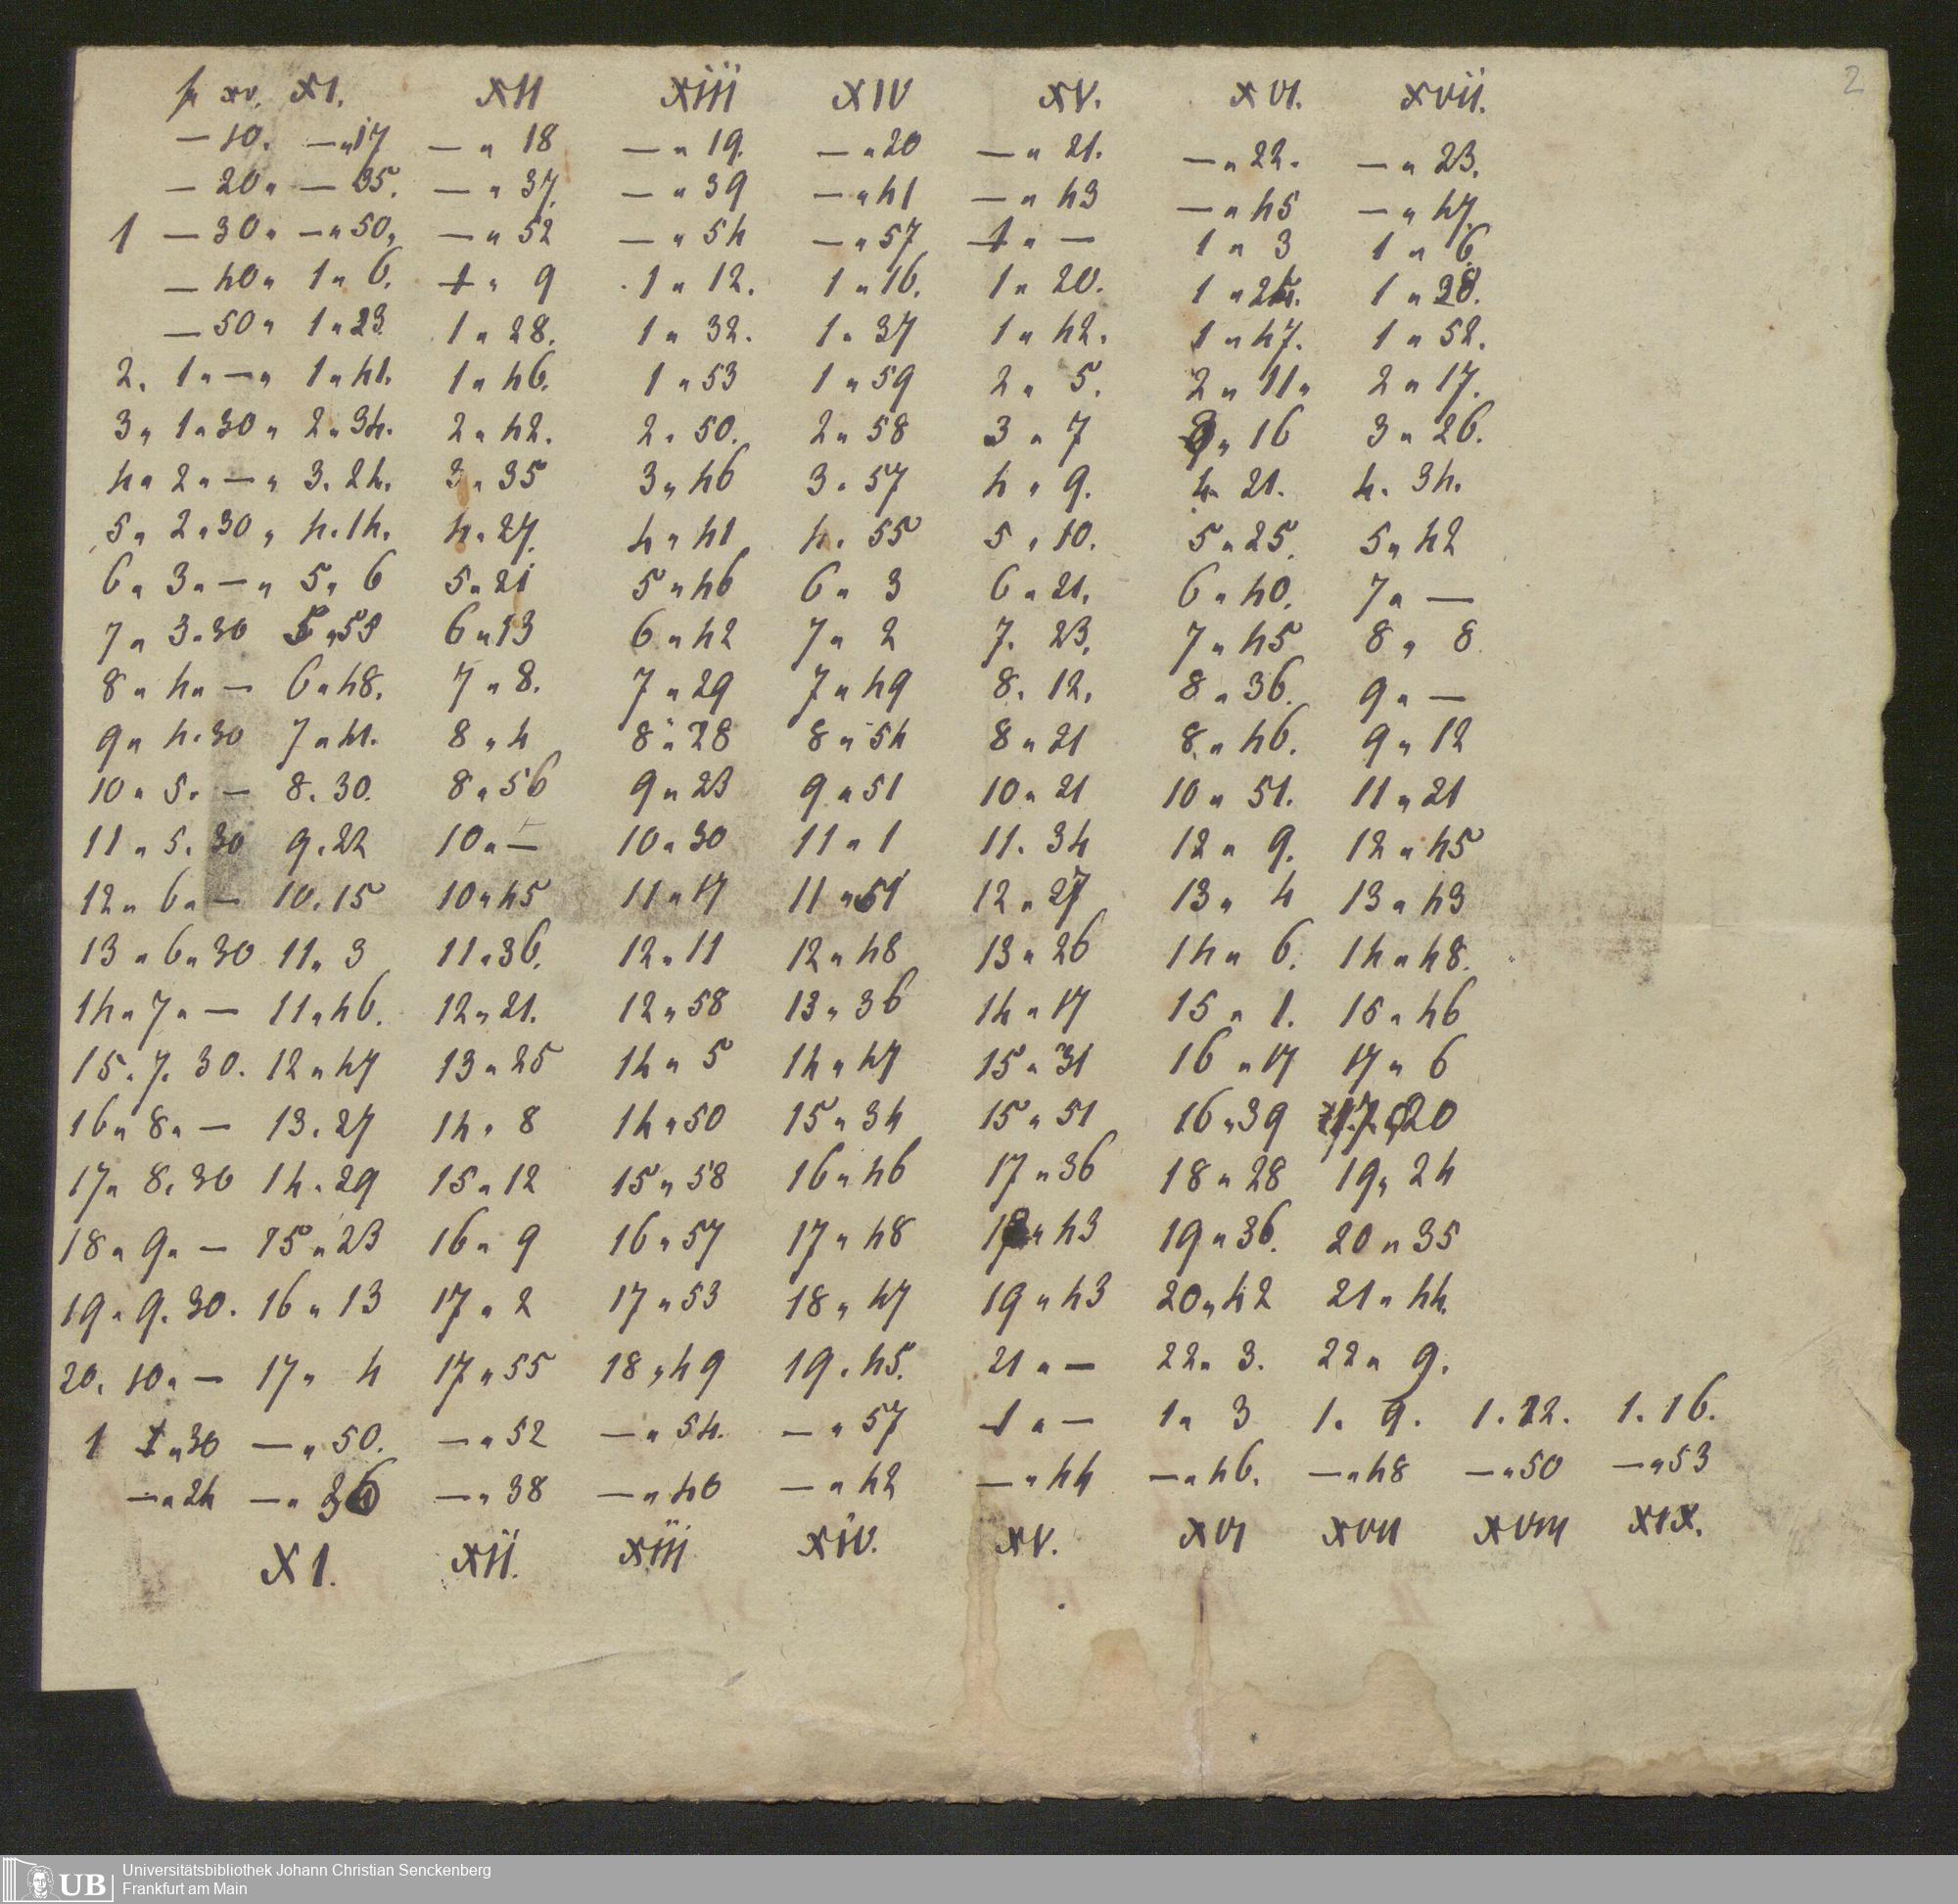 fr xv. XI. XII XIII XIV XV. XVI. XVII. 2
— 10. — " 17 — " 18 — " 19. — " 20 — " 21. — " 22. — " 23.
— 20 " — 35. — " 37. — " 39 — " 41 — " 43 — " 45 — " 47.
1 — 30 " — " 50. — " 52 — " 54 — " 57 1 " — 1 " 3 1 " 6.
— 40 " 1 " 6. 1 " 9 1 " 12. 1 " 16. 1 " 20. 1 " 24. 1 " 28.
— 50 " 1 " 23. 1 " 28. 1 " 32. 1 " 37 1 " 42. 1 " 47. 1 " 52.
2. 1 " — " 1 " 41. 1 " 46. 1 " 53 1 " 59 2 " 5. 2 " 11 " 2 " 17.
3 " 1 " 30 " 2 " 34. 2 " 42. 2 " 50. 2 " 58 3 " 7 3 " 16 3 " 26.
4 " 2 " — " 3. 24. 3 " 35 3 " 46 3 " 57 4 " 9. 4 " 21. 4. 34.
5 " 2 " 30 " 4. 14. 4 " 27. 4 " 41 4. 55 5 " 10. 5 " 25. 5 " 42
6 " 3 " — " 5 " 6 5 " 21 5 " 46 6 " 3 6 " 21. 6 " 40. 7 " —
7 " 3 " 30 5 " 59 6 " 13 6 " 42 7 " 2 7. 23. 7 " 45 8 " 8
8 " 4 " — 6 " 48. 7 " 8. 7 " 29 7 " 49 8. 12. 8 " 36. 9 " —
9 " 4. 30 7 " 41. 8 " 4 8 " 28 8 " 54 8 " 21 8 " 46. 9 " 12
10 " 5. — 8. 30. 8 " 56 9 " 23 9 " 51 10 " 21 10 " 51. 11 " 21
11 " 5. 30 9. 22 10 " — 10 " 30 11 " 1 11. 34 12 " 9. 12 " 45
12 " 6 " — 10. 15 10 " 45 11 " 17 11 " 51 12 " 27 13 " 4 13 " 43
13 " 6 " 30 11 " 3 11 " 36. 12 " 11 12 " 48 13 " 26 14 " 6. 14 " 48.
14 " 7 " — 11 " 46. 12 " 21. 12 " 58 13 " 36 14 " 17 15 " 1. 15 " 46
15. 7. 30. 12 " 47 13 " 25 14 " 5 14 " 47 15 " 31 16 " 17 17 " 6
16 " 8 " — 13. 27 14 " 8 14 " 50 15 " 34 15 " 51 16 " 39 17 " 20
17 " 8. 30 14 " 29 15 " 12 15 " 58 16 " 46 17 " 36 18 " 28 19 " 24
18 " 9 " — 15 " 23 16 " 9 16 " 57 17 " 48 18 " 43 19 " 36. 20 " 35
19 " 9. 30. 16 " 13 17 " 2 17 " 53 18 " 47 19 " 43 20 " 42 21 " 44.
20. 10 " — 17 " 4 17 " 55 18 " 49 19. 45. 21 " — 22 " 3. 22 " 9.
1 " 30 — " 50. — " 52 — " 54. — " 57 1 " — 1 " 3 1. 9. 1. 12. 1. 16.
— " 24 — " 36 — " 38 — " 40 — " 42 — " 44 — " 46. — " 48 — " 50 — " 53
XI. XII. XIII XIV. XV. XVI XVII XVIII XIX.
UB Universitätsbibliothek Johann Christian Senckenberg
Frankfurt am Main